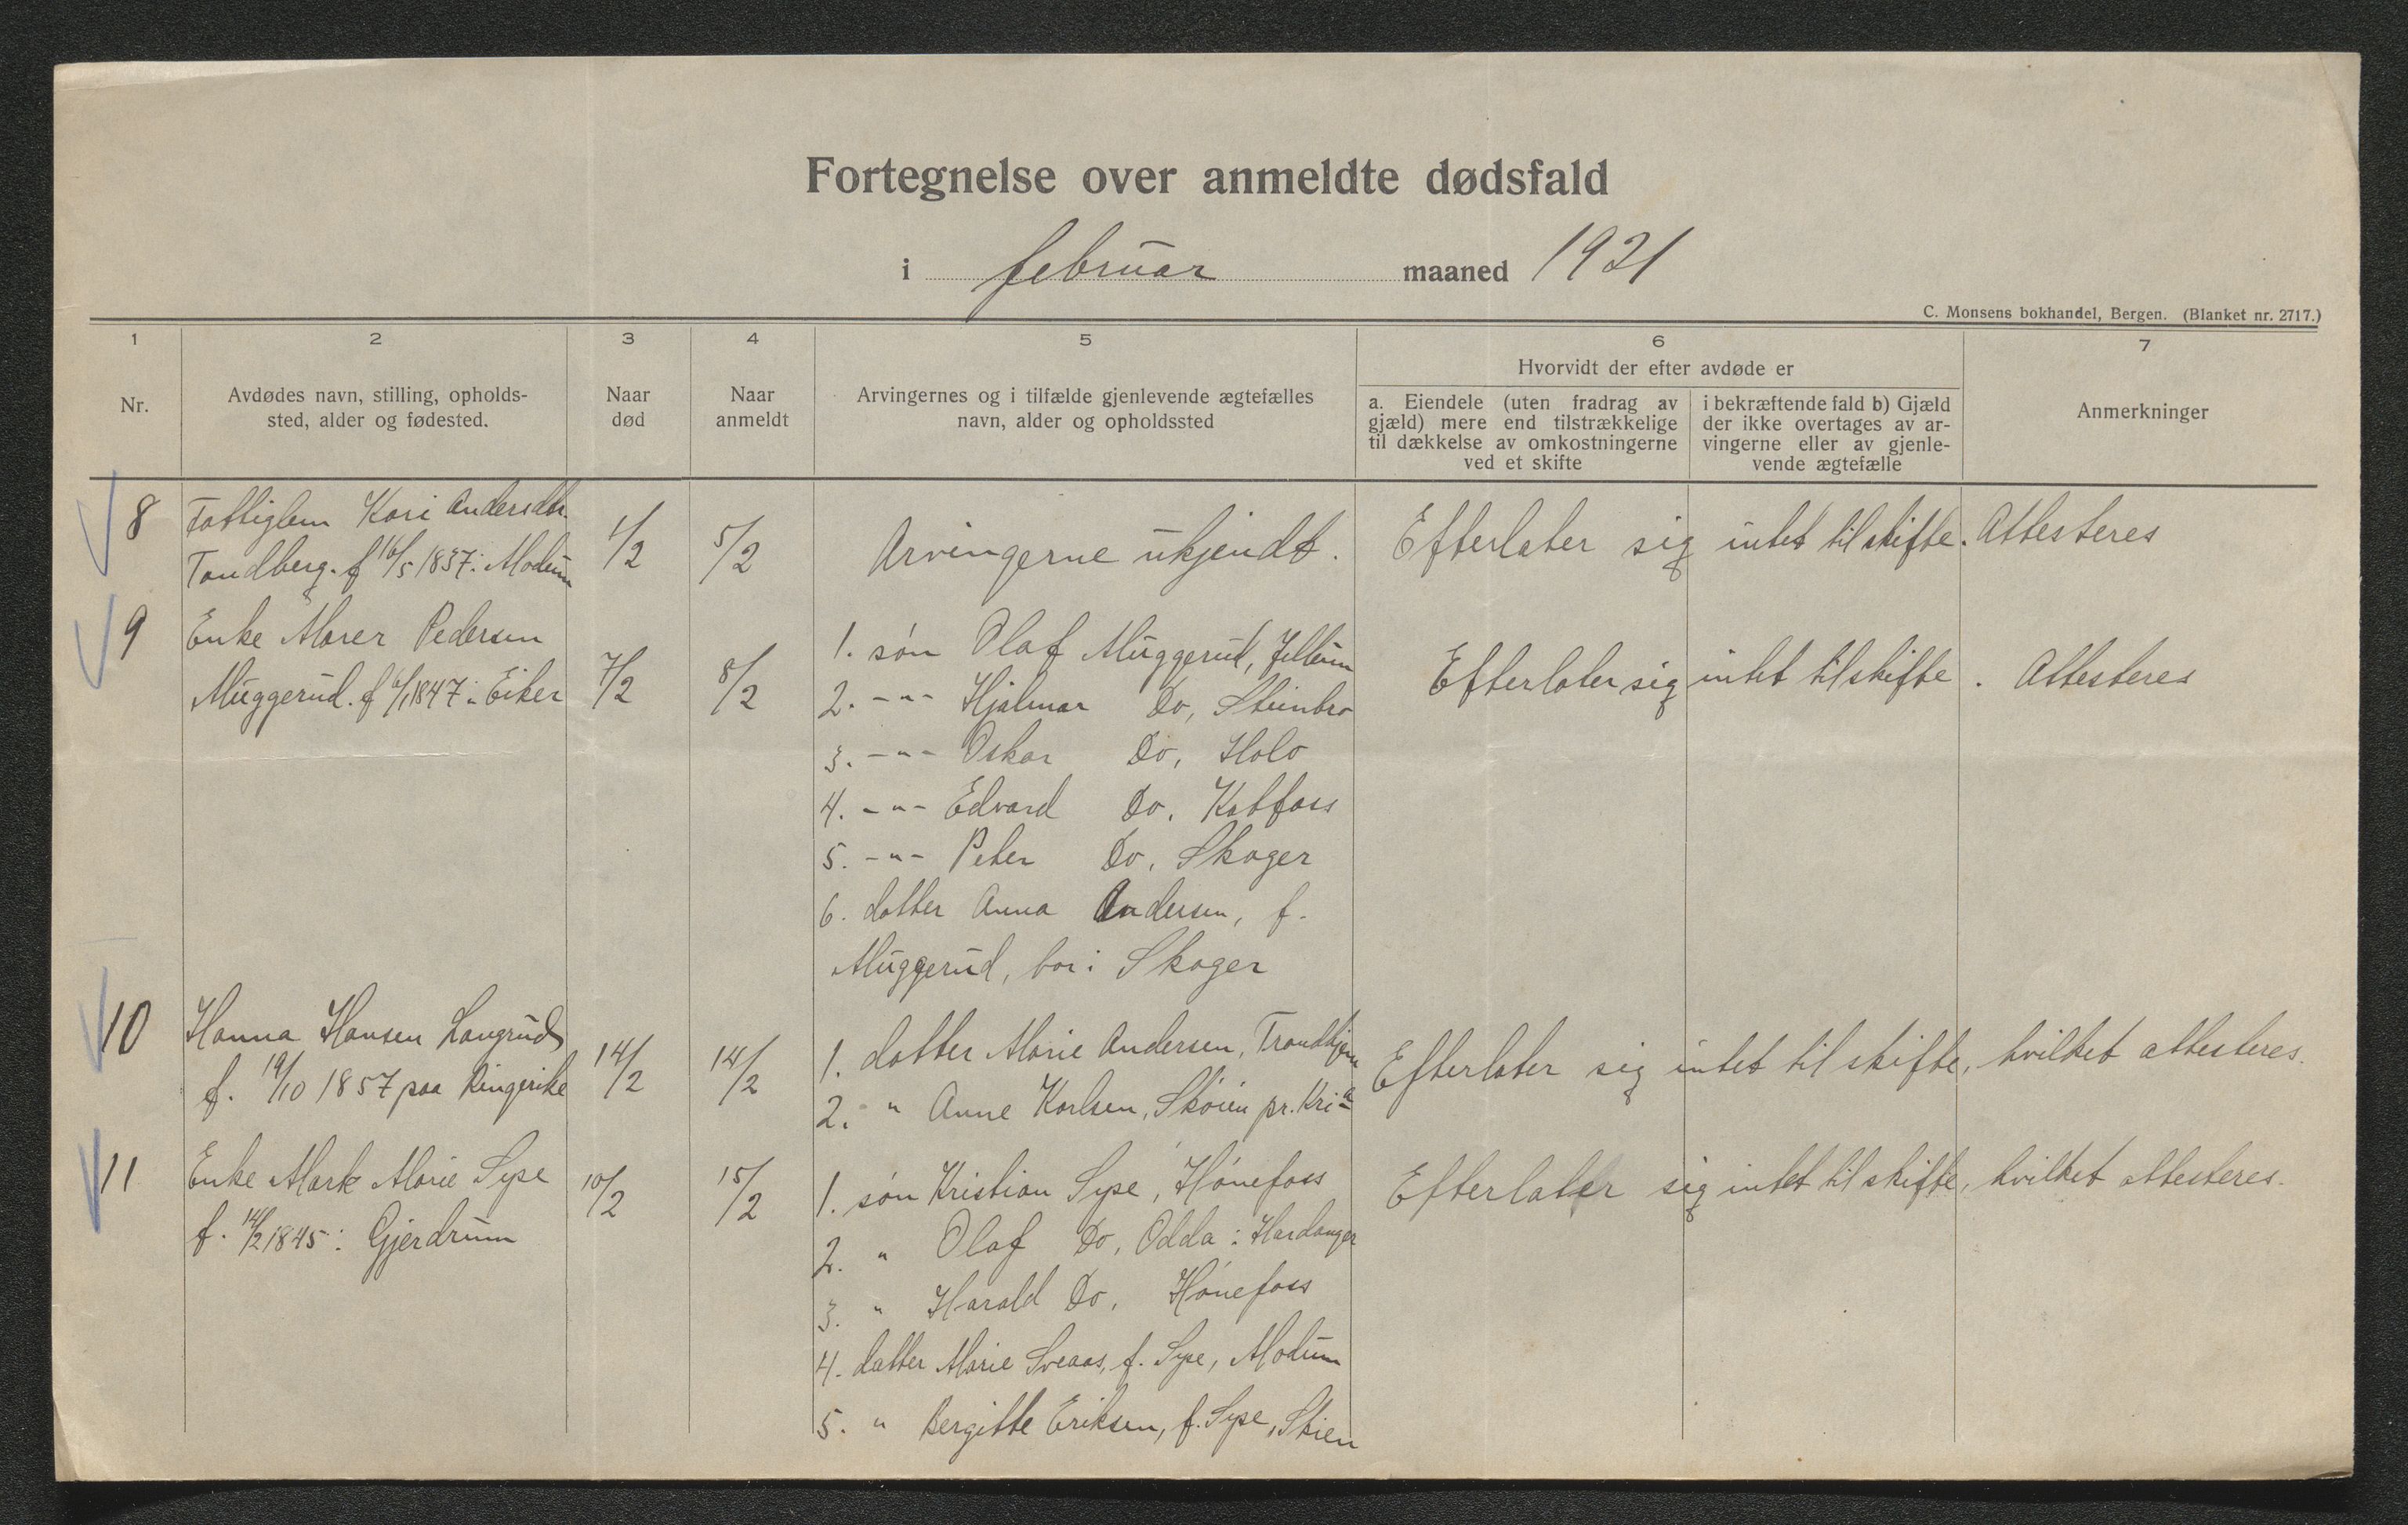 Fortegnelse over anmeldte dødsfald
i februar maaned 1921
C. Monsens bokhandel, Bergen. (Blanket nr. 2717.)
1 2 3 4 5 6 7
Nr.
Avdødes navn, stilling, opholds-
sted, alder og fødested.
Naar
død
Naar
anmeldt
Arvingernes og i tilfælde gjenlevende ægtefælles
navn, alder og opholdssted
Hvorvidt der efter avdøde er
a. Eiendele (uten fradrag av
gjæld) mere end tilstrækkelige
til dækkelse av omkostningerne
ved et skifte
i bekræftende fald b) Gjæld
der ikke overtages av ar-
vingerne eller av gjenle-
vende ægtefælle
Anmerkninger
8 Fattiglem Kari Andersdtr.
Tandberg. f 16/5 1837 i Modum
1/2
5/2
Arvingerne ukjendt.
Efterlater sig intet til skifte. Attesteres
9 Enke Maren Pedersen
Muggerud. f 6/1 1847 i Eiker
7/2
8/2
1. søn Olaf Muggerud,
2. -"- Hjalmar Do, Steinbro
3. -"- Oskar Do, Holo
4. -"- Edvard Do, Katfoss
5. -"- Peter Do, Skoger
6. datter Anna Andersen, f.
Muggerud, bor i Skoger
Efterlater sig intet til skifte. Attesteres
10 Hanna Hansen Langrud
f. 19/10 1857 paa Ringerike
14/2
14/2
1. datter Marie Andersen, Trondhjem
2. " Anne Karlsen, Skøien pr. Kria
Efterlater sig intet til skifte, hvilket attesteres.
11 Enke Mark Marie Sype
f. 14/2 1845 i Gjerdrum
10/2
15/2
1. søn Kristian Sype, Hønefoss
2. " Olaf Do, Odda i Hardanger
3. " Harald Do, Hønefoss
4. datter Marie Sveaas, f. Sype, Modum
5. " Bergitte Eriksen, f. Sype, Skien
Efterlater sig intet til skifte, hvilket attesteres.